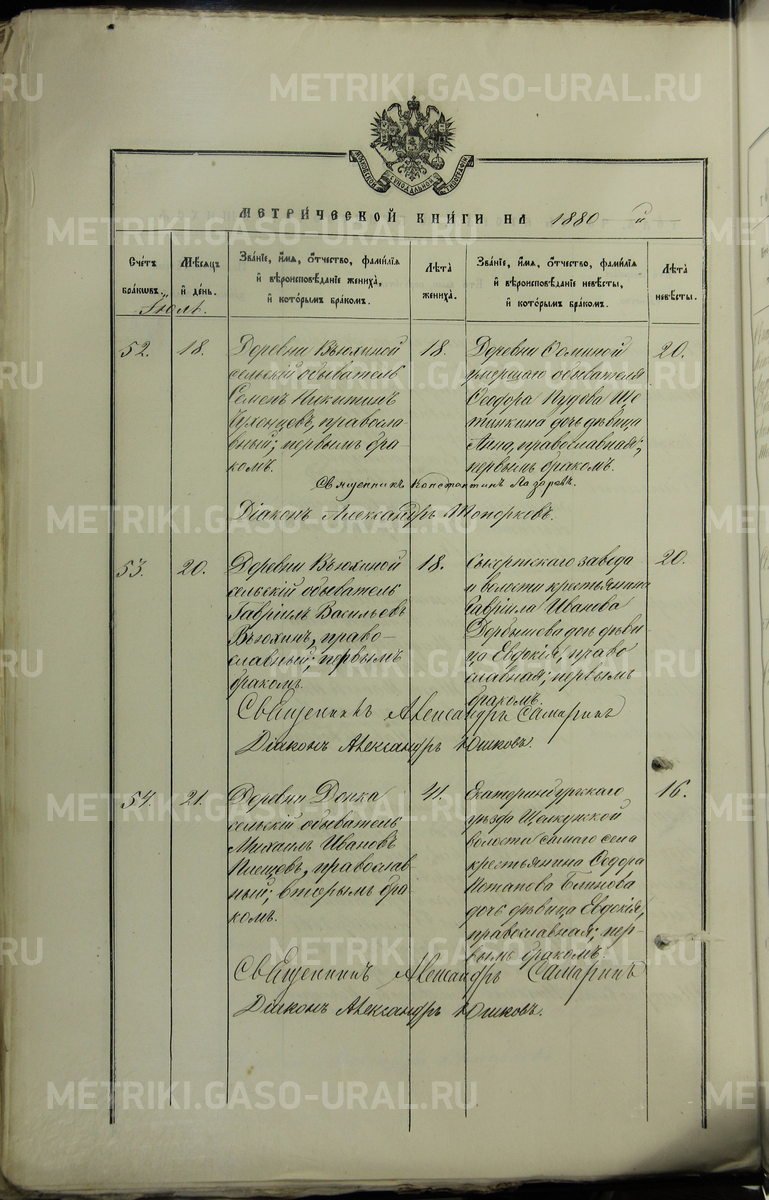 METRIKI.GASO-URAL.RU
МОСКОВСКОЙ СѴНОДАЛЬНОЙ ТИПОГРАФІИ
МЕТРИ́ЧЕСКОЙ КНИ́ГИ НА 1880 й
Сче́тъ бра́ковъ.
Мѣ́сяцъ и҆ де́нь.
Зва́нїе, и҆́мя, ѻ҆́тчество, фами́лїя и҆ вѣроисповѣ́данїе жениха̀, и҆ кото́рымъ бра́комъ.
Лѣ́та жениха̀.
Зва́нїе, и҆́мя, ѻ҆́тчество, фами́лїя и҆ вѣроисповѣ́данїе невѣ́сты, и҆ кото́рымъ бра́комъ.
Лѣ́та невѣ́сты.
Іюль.
52.
18.
Деревни Вьюхиной
сельскій обыватель
Семенъ Никитинъ
православный; первымъ бра
комъ.
18.
Деревни
умершаго обывателя
Ѳеодора Ще
тинкина дочь дѣвица
Анна, православная;
первымъ бракомъ.
20.
Священникъ Константинъ Лазаревъ.
Діаконъ Александръ Топорковъ.
53.
20.
Деревни Вьюхиной
сельскій обыватель
Гавріилъ Васильевъ
Вьюхинъ, право-
славный; первымъ
бракомъ.
18.
Сысертскаго завода
и волости крестьянина
Гавріила Иванова
дочь дѣви-
ца Евдокія, право
славная; первымъ
бракомъ.
20.
Священникъ Александръ Самаринъ
Діаконъ Александръ Юшковъ.
54.
21.
Деревни
сельскій обыватель
Михаилъ Ивановъ
православ
ный; вторымъ бра
комъ.
41.
Екатеринбургскаго
уѣзда Щелкунской
волости самаго села
крестьянина Ѳедора
Потапова Блинова
дочь дѣвица Евдокія,
православная; пер
вымъ бракомъ.
16.
Священникъ Александръ Самаринъ
Діаконъ Александръ Юшковъ.